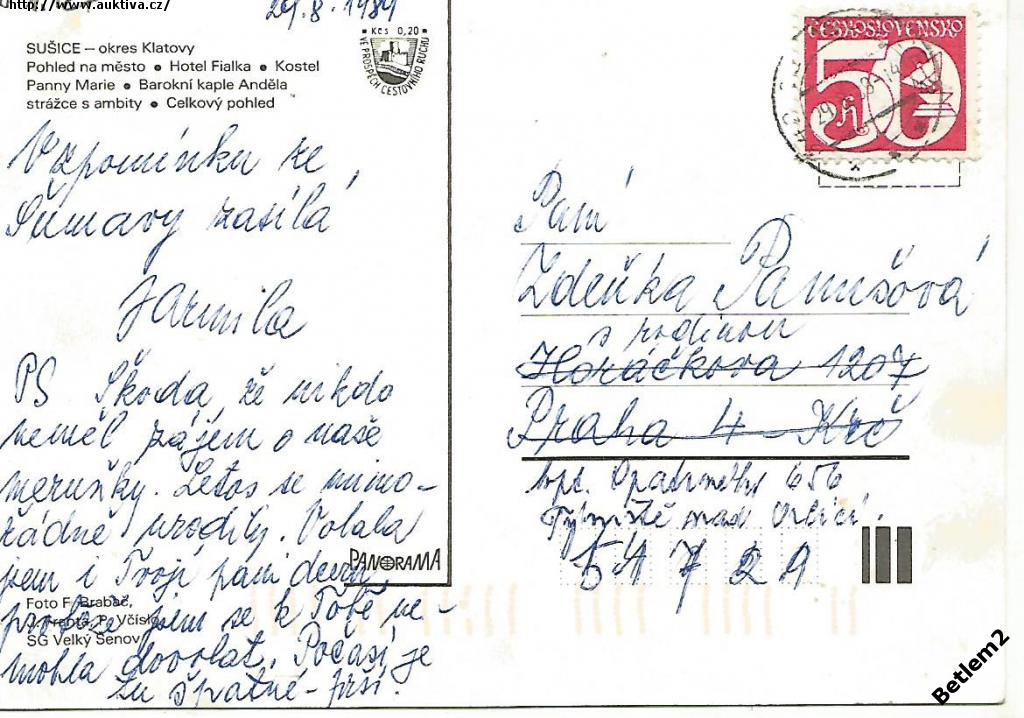 http://www.auktiva.cz/
29.8.1989
SUŠICE – okres Klatovy
Pohled na město • Hotel Fialka • Kostel
Panny Marie • Barokní kaple Anděla
strážce s ambity • Celkový pohled
Kčs 0,20
VE PROSPĚCH CESTOVNÍHO RUCHU
Vzpomínku ze
Šumavy zasílá
Jarmila
PS Škoda, že nikdo
neměl zájem o naše
meruňky. Letos se mimo-
řádně urodily. Volala
jsem i Tvoji paní
protože jsem se k Tobě ne-
mohla dovolat. Počasí je
tu špatné - prší.
PANORAMA
Foto F. Brabač,
P. Včíslo
SG Velký Šenov
ČESKOSLOVENSKO
50
Paní
Zdeňka
s rodinou
Horáčkova 1207
Praha 4 - Krč
Opatrného 656
Týniště nad Orlicí.
51721
Betlem2